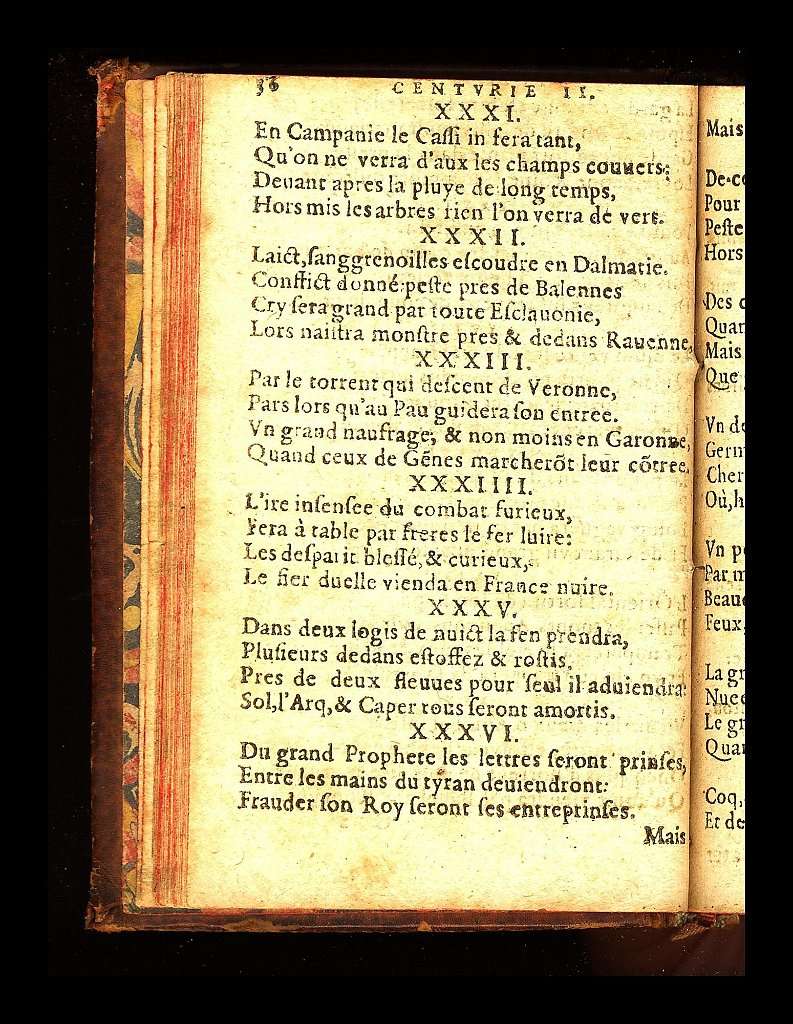 36 CENTVRIE II.
XXXI.
En Campanie le Caſſi in fera tant,
Qu'on ne verra d'aux les champs couuers:
Deuant apres la pluye de long temps,
Hors mis les arbres rien l'on verra de vert.
XXXII.
Laict, ſang grenoilles eſcoudre en Dalmatie.
Conflict donné: peſte pres de Balennes
Cry ſera grand par toute Eſclauonie,
Lors naiſtra monſtre pres & dedans Rauenne,
XXXIII.
Par le torrent qui deſcent de Veronne,
Pars lors qu'au Pau guidera ſon entree.
Vn grand naufrage, & non moins en Garonne,
Quand ceux de Gẽnes marcherõt leur cõtree.
XXXIIII.
L'ire inſenſee du combat furieux,
Fera à table par freres le fer luire:
Les deſpartit bleſſé, & curieux,
Le fier duelle vienda en France nuire.
XXXV.
Dans deux logis de nuict la fen prendra,
Pluſieurs dedans eſtoffez & roſtis.
Pres de deux fleuues pour ſeul il aduiendra:
Sol, l'Arq, & Caper tous ſeront amortis.
XXXVI.
Du grand Prophete les lettres ſeront prinſes,
Entre les mains du tyran deuiendront:
Frauder ſon Roy ſeront ſes entreprinſes.
Mais
Mais
De-ce
Pour
Peſte
Hors
Des
Quan
Mais
Que
Vn de
Germ
Cher
Où, h
Vn p
Par m
Beau
Feux,
La gr
Nuee
Le gr
Quan
Coq,
Et de